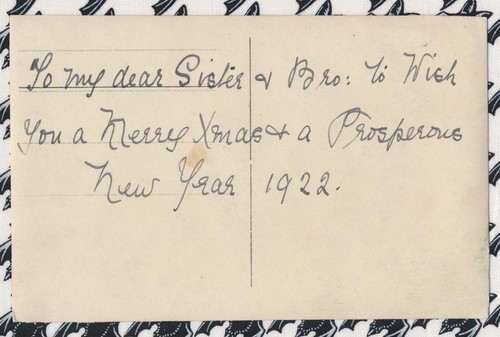 To my dear Sister & Bro: to Wish
you a Merry Xmas & a Prosperous
New Year 1922.